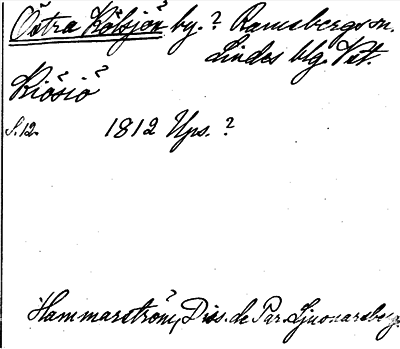 Östra Kölsjön by.? Ramsbergs sn.
Lindes blg. Vst.
Kiösiö?
S. 12. 1812 Ups. ?
Hammarström, Diss. de Par. Ljusnarsberg.